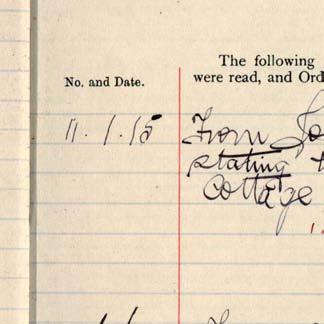 The following
were read, and Ord
No. and Date.
11.1.15 From
stating
cottage